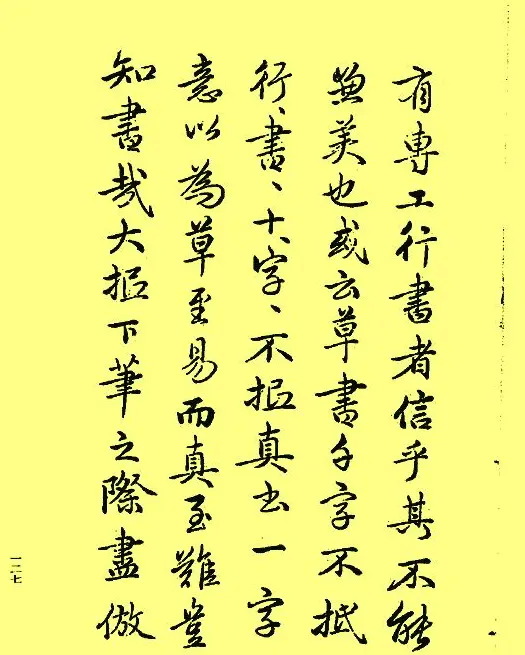 有專工行書者信乎其不能
兼美也或云草書千字不抵
行〻書〻十〻字〻不抵真書一字
意以為草至易而真至難豈
知書哉大抵下筆之際盡倣
一二七